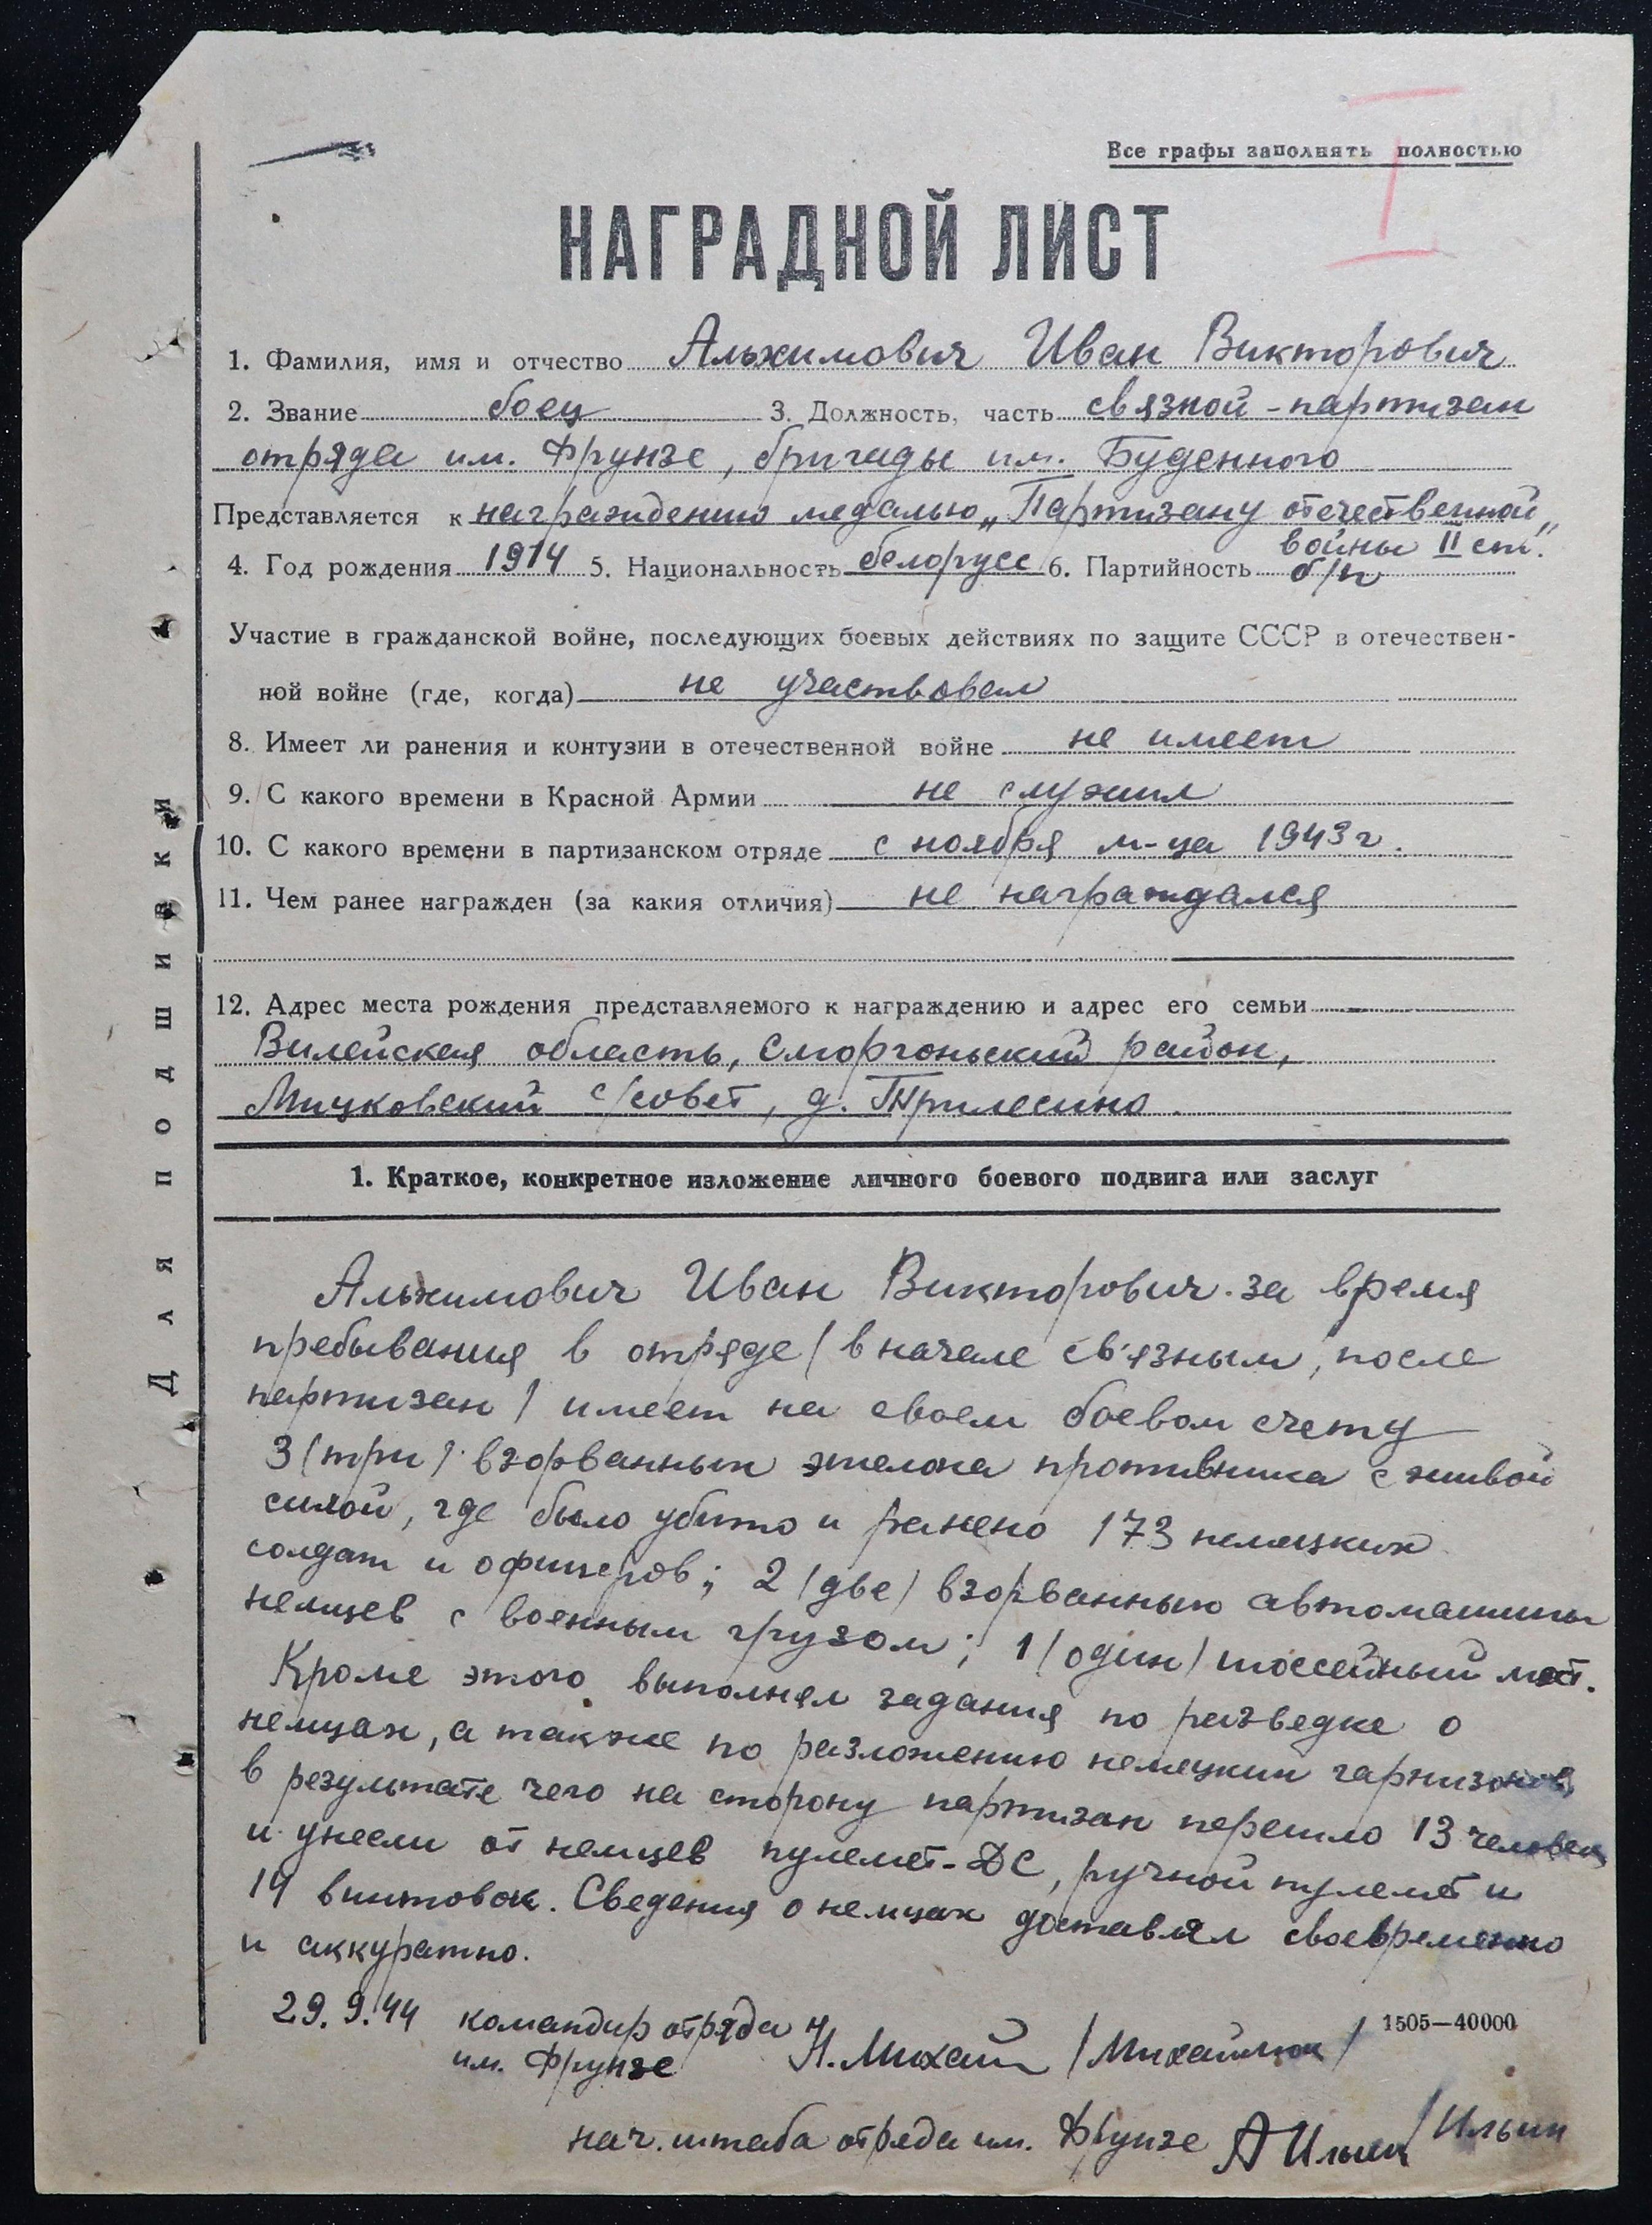 I
Все графы заполнять полностью
НАГРАДНОЙ ЛИСТ
1. Фамилия, имя и отчество Альхимович Иван Викторович
2. Звание боец 3. Должность, часть связной - партизан
отряда им. Фрунзе, бригады им. Буденного
Представляется к награждению медалью „Партизану отечественной
войны II ст."
4. Год рождения 1914 5. Национальность белорусс 6. Партийность б/п
Участие в гражданской войне, последующих боевых действиях по защите СССР в отечествен-
ной войне (где, когда) не участвовал
8. Имеет ли ранения и контузии в отечественной войне не имеет
9. С какого времени в Красной Армии не служил
10. С какого времени в партизанском отряде с ноября м-ца 1943 г.
11. Чем ранее награжден (за какия отличия) не награждался
12. Адрес места рождения представляемого к награждению и адрес его семьи
Вилейская область, Сморгоньский район,
Мицковский с/совет, д. Трилесино.
1. Краткое, конкретное изложение личного боевого подвига или заслуг
Альхимович Иван Викторович за время
пребывания в отряде / в начале св'язным, после
партизан / имеет на своем боевом счету
3 /три/ взорванных эшелона противника с живой
силой, где было убито и ранено 173 немецких
солдат и офицеров; 2 /две/ взорванных автомашины
немцев с военным грузом; 1 /один/ шоссейный мост.
Кроме этого выполнял задания по разведке о
немцах, а также по разложению немецких гарнизонов,
в результате чего на сторону партизан перешло 13 человек
и унесли от немцев пулемет-ДС, ручной пулемет и
14 винтовок. Сведения о немцах доставлял своевременно
и аккуратно.
29.9.44 командир отряда
им. Фрунзе Н. Михай /Михайлюк/
1505—40000
нач. штаба отряда им. Фрунзе А Ильин /Ильин
Для подшивки